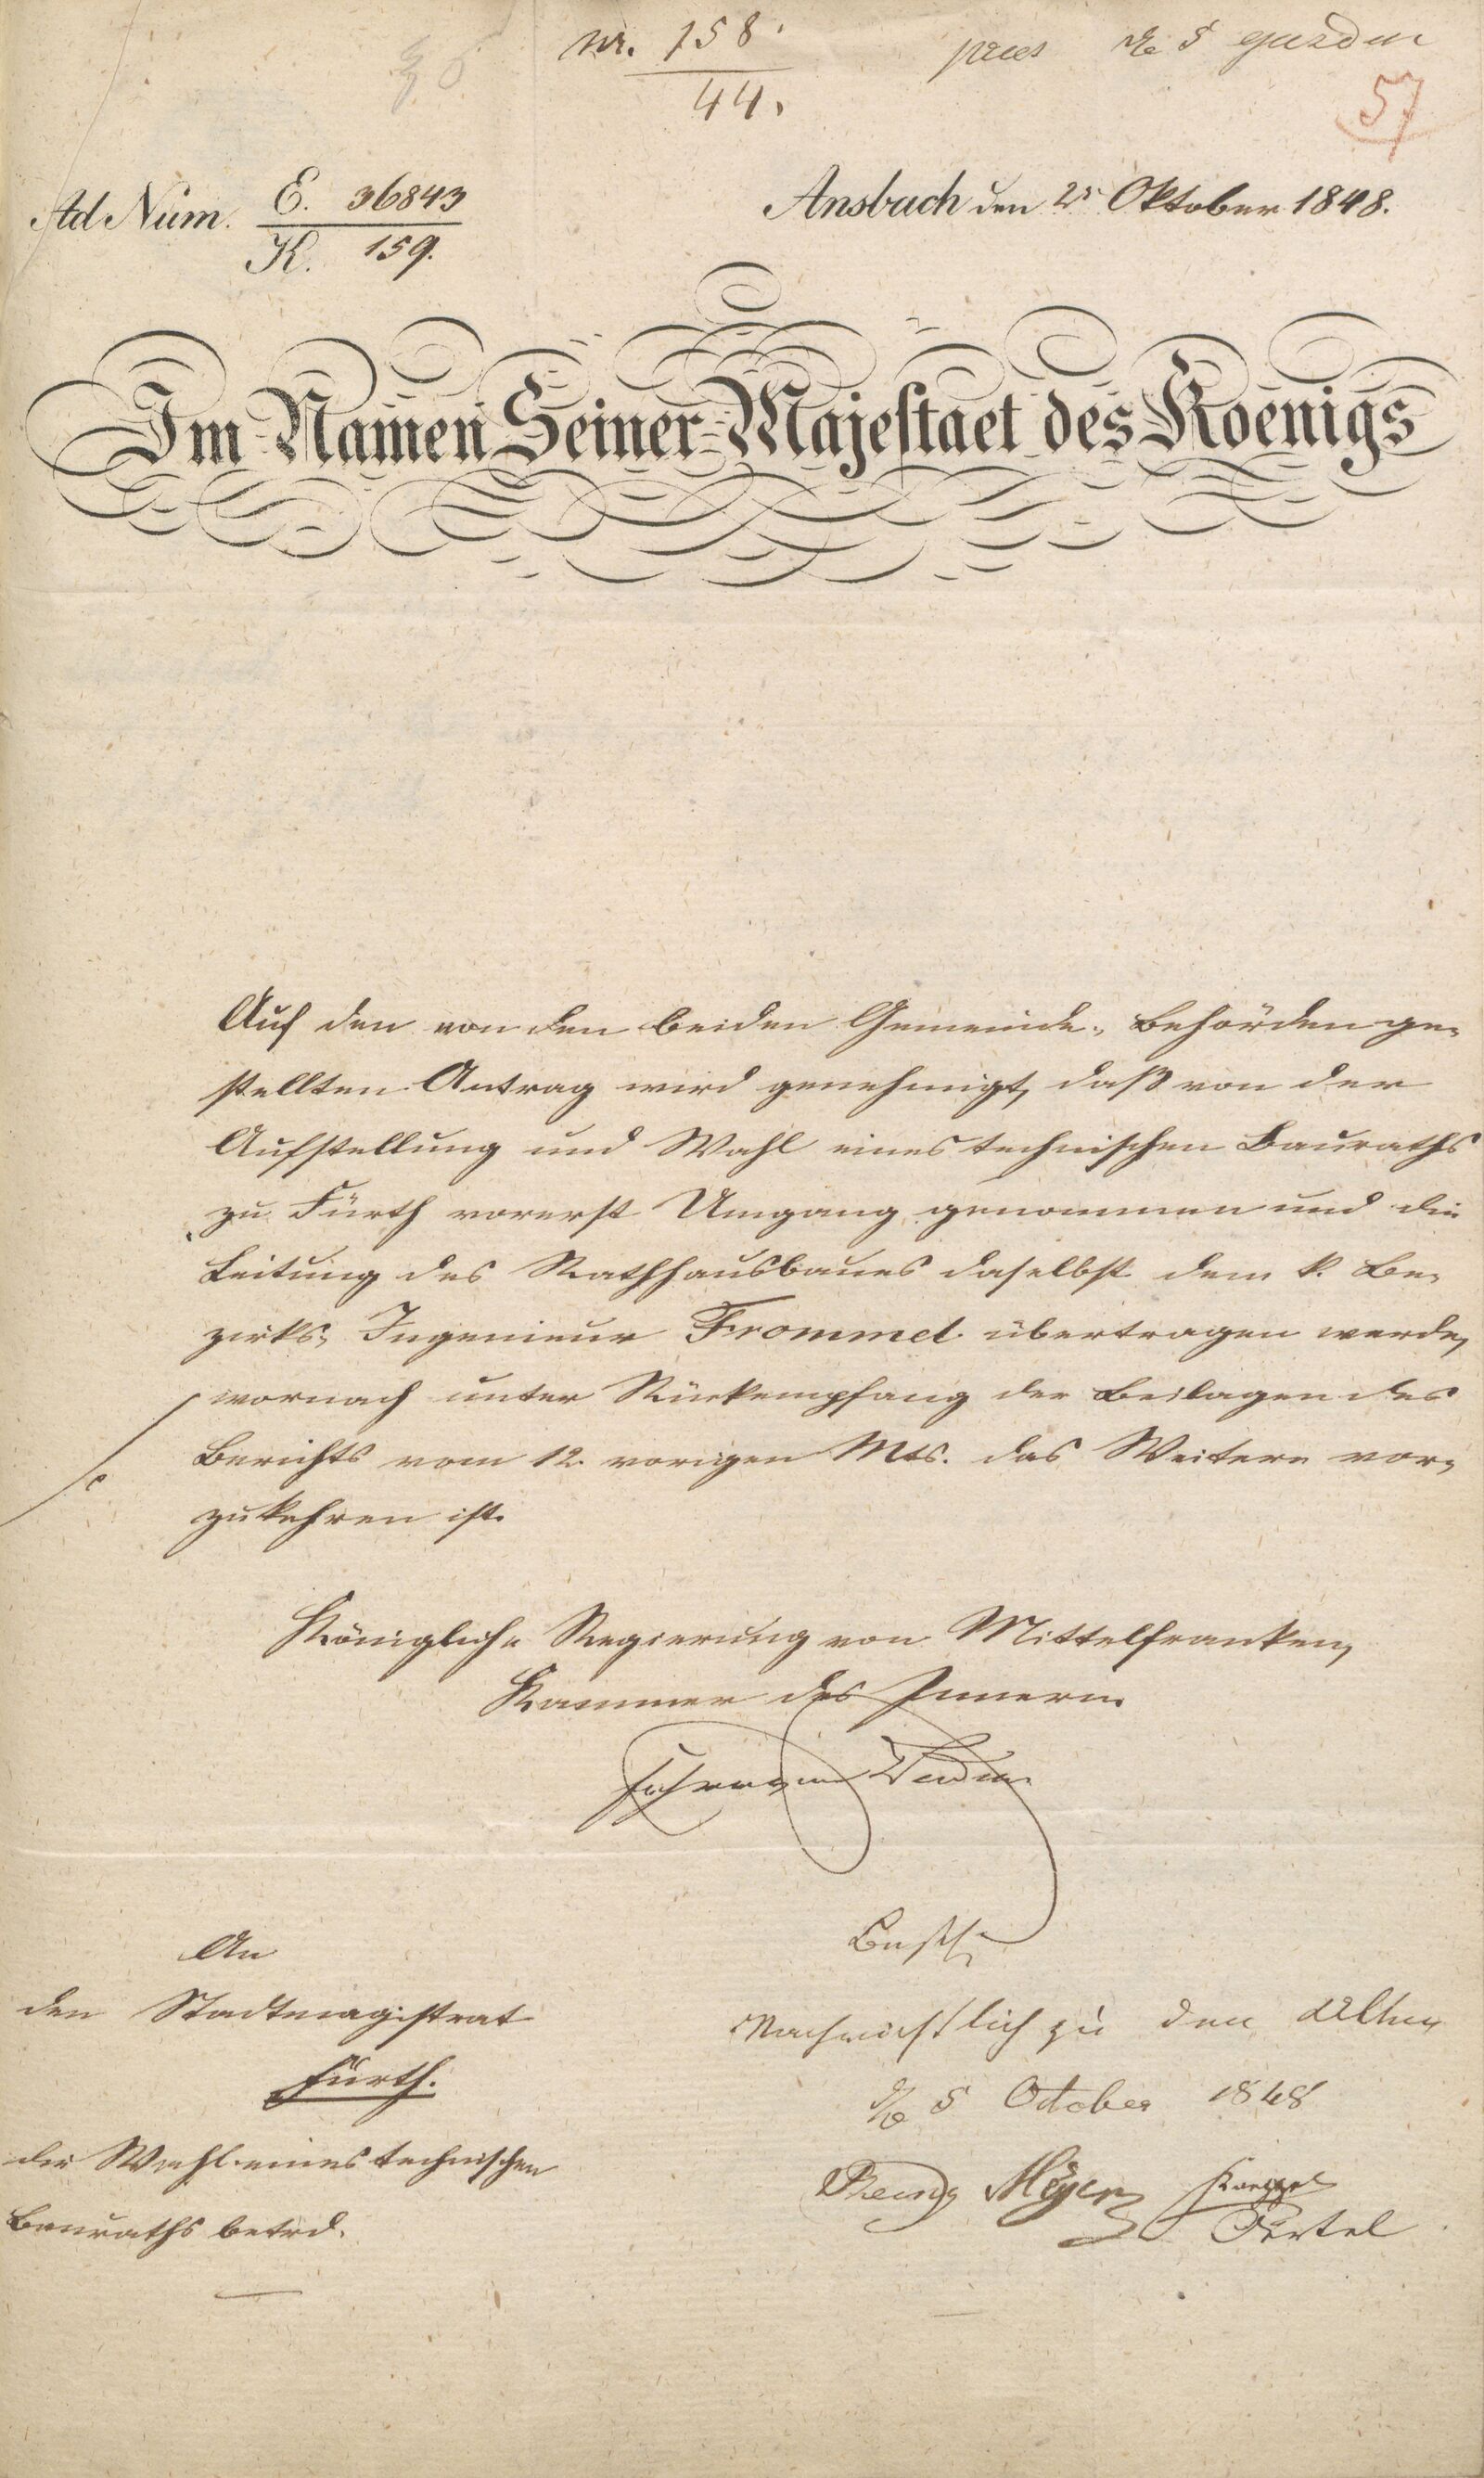 Nr. 158.
44.
57
Ad Num. E. 36843
K. 159.
Ansbach den 2. Oktober 1848.
Im Namen Seiner Majestaet des Koenigs
Auf den von den beiden Gemeinde-Behörden ge-
stellten Antrag wird genehmigt, daß von der
Aufstellung und Wahl eines technischen Bauraths
zu Fürth vorerst Umgang genommen und die
Leitung des Rathhausbaues daselbst dem k. Be-
zirks-Ingenieur Frommel übertragen werde,
wornach unter Rückempfang der Beilagen des
Berichts vom 12. vorigen Mts. das Weitere vor-
zukehren ist.
Königliche Regierung von Mittelfranken,
Kammer des Innern.
An
den Stadtmagistrat
Fürth.
die Wahl eines technischen
Bauraths betrd.
Nachrichtlich zu den Akten
5 October 1848
Meyer